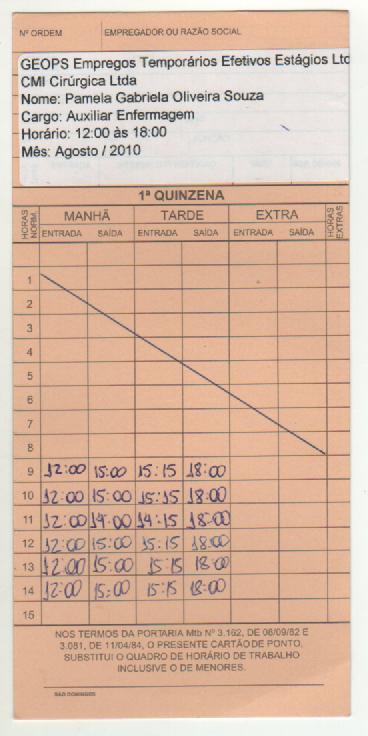 Nº ORDEM EMPREGADOR OU RAZÃO SOCIAL
GEOPS Empregos Temporários Efetivos Estágios Ltd
CMI Cirúrgica Ltda
Nome: Pamela Gabriela Oliveira Souza
Cargo: Auxiliar Enfermagem
Horário: 12:00 às 18:00
Mês: Agosto / 2010
1ª QUINZENA
HORAS NORM. MANHÃ TARDE EXTRA HORAS EXTRAS
ENTRADA SAÍDA ENTRADA SAÍDA ENTRADA SAÍDA
1
2
3
4
5
6
7
8
9 12:00 15:00 15:15 18:00
10 12:00 15:00 15:15 18:00
11 12:00 14:00 14:15 18:00
12 12:00 15:00 15:15 18:00
13 12:00 15:00 15:15 18:00
14 12:00 15:00 15:15 18:00
15
NOS TERMOS DA PORTARIA Mtb Nº 3.162, DE 08/09/82 E
3.081, DE 11/04/84, O PRESENTE CARTÃO DE PONTO,
SUBSTITUI O QUADRO DE HORÁRIO DE TRABALHO
INCLUSIVE O DE MENORES.
SÃO DOMINGOS